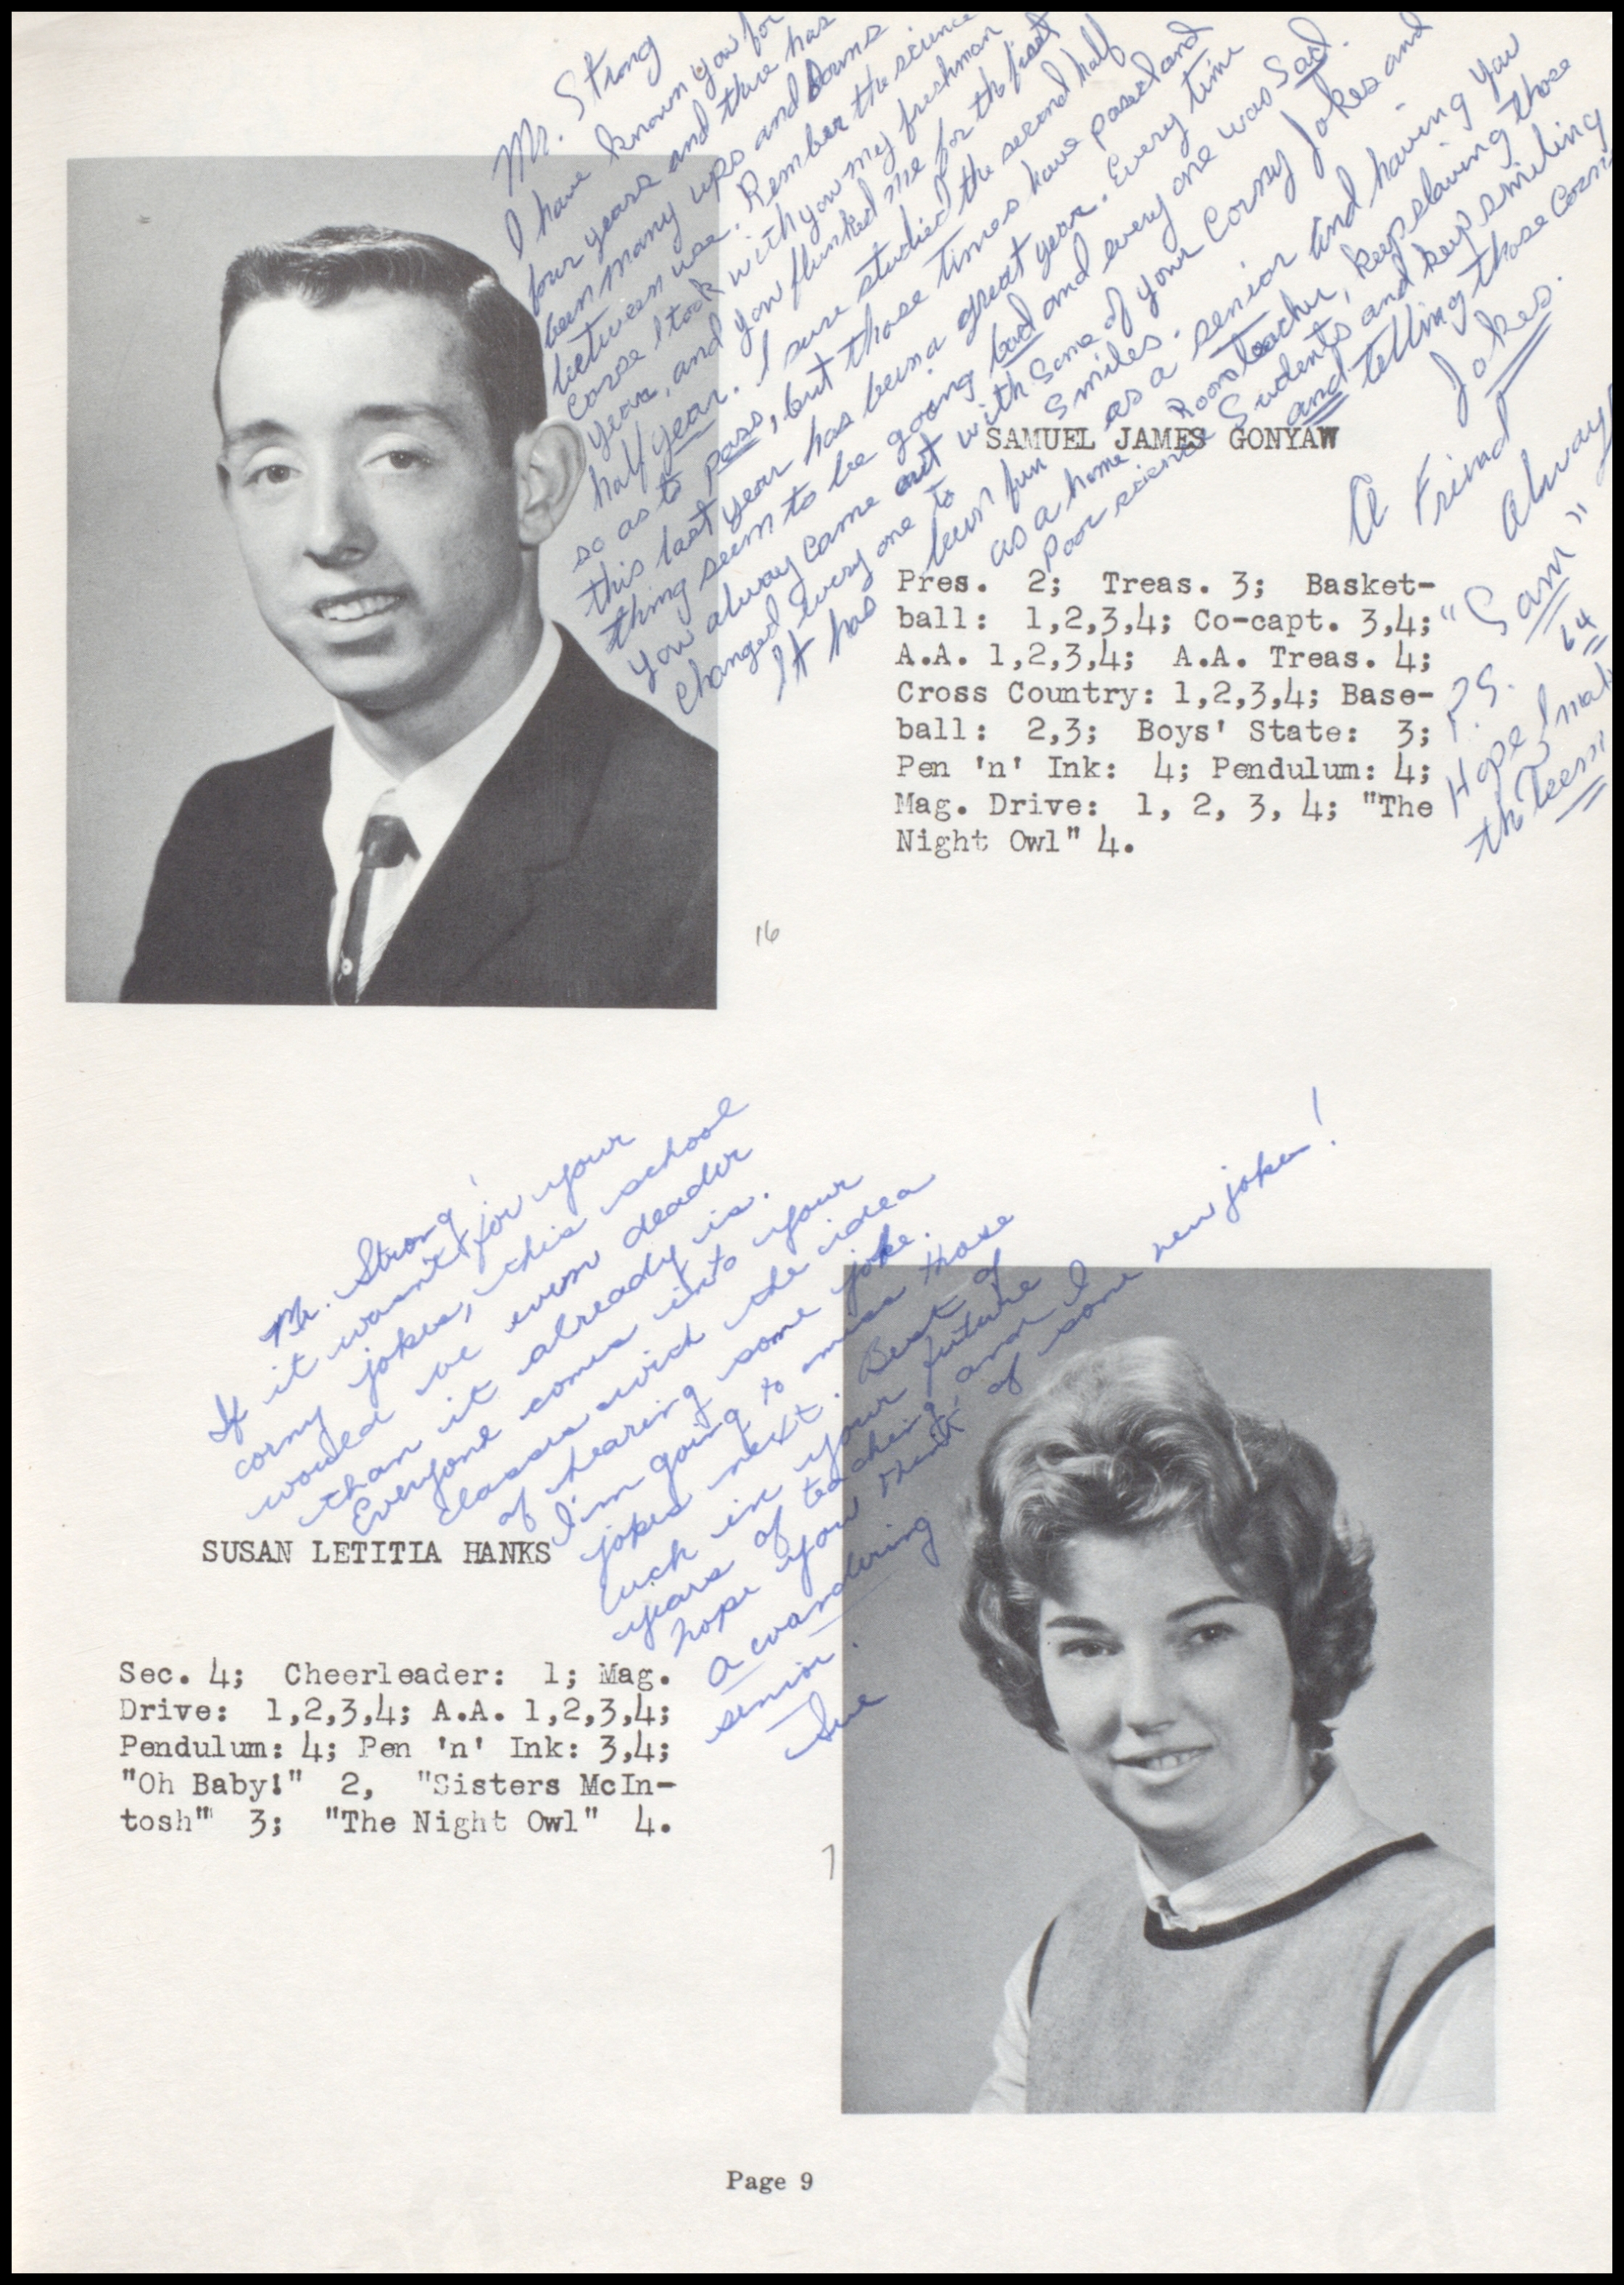 Mr. Strong
I have known you for
four years and there has
been many ups and downs
between use. Rember the science
corse I took with you my freshman
year, and you flunked me for the first
half year. I sure studied the second half
so as to pass, but those times have passed and
this last year has been a great year. Every time
thing seem to be going bad and every one was sad.
you alway came out with some of your corny jokes and
changed every one to smiles.
It has been fun as a senior and having you
as a home room teacher, keep slaving those
poor science students and keep smiling
and telling those corni
jokes.
A Friend
Always
"Sam"
64
P.S.
Hope I mak
th Teem
SAMUEL JAMES GONYAW
Pres. 2; Treas. 3; Basket-
ball: 1,2,3,4; Co-capt. 3,4;
A.A. 1,2,3,4; A.A. Treas. 4;
Cross Country: 1,2,3,4; Base-
ball: 2,3; Boys' State: 3;
Pen 'n' Ink: 4; Pendulum: 4;
Mag. Drive: 1, 2, 3, 4; "The
Night Owl" 4.
16
Mr. Strong!
If it wasn't for your
corny jokes, this school
would be even deader
than it already is.
Everyone comes into your
classes with the idea
of hearing some joke.
I'm going to miss those
jokes next. Best of
luck in your future
years of teaching, and I
hope you think of some new jokes!
a wandering
senior.
Sue
SUSAN LETITIA HANKS
Sec. 4; Cheerleader: 1; Mag.
Drive: 1,2,3,4; A.A. 1,2,3,4;
Pendulum: 4; Pen 'n' Ink: 3,4;
"Oh Baby!" 2, "Sisters McIn-
tosh" 3; "The Night Owl" 4.
7
Page 9